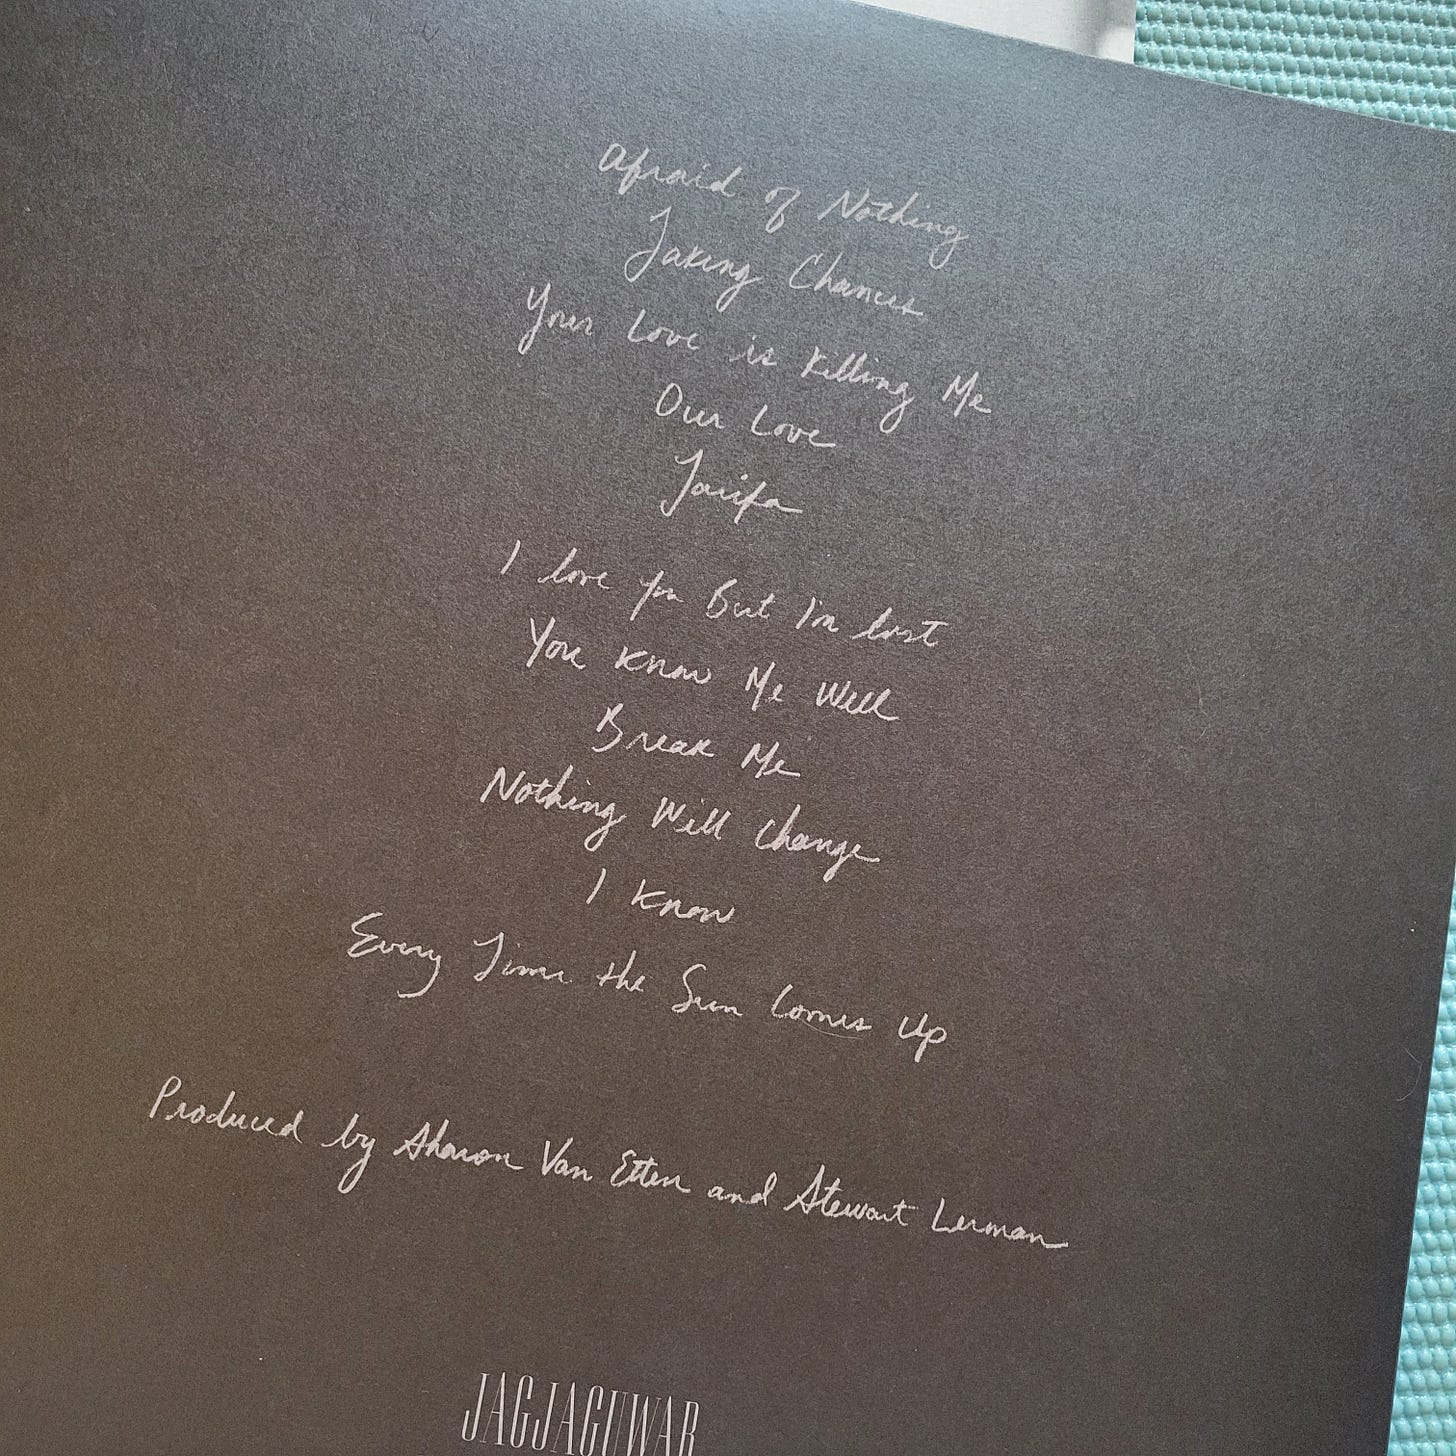 Afraid of Nothing
Taking Chances
Your Love is Killing Me
Our Love
Tarifa
I love you But I'm lost
You Know Me Well
Break Me
Nothing Will Change
I Know
Every Time the Sun Comes Up
Produced by Sharon Van Etten and Stewart Lerman
JAGJAGUWAR